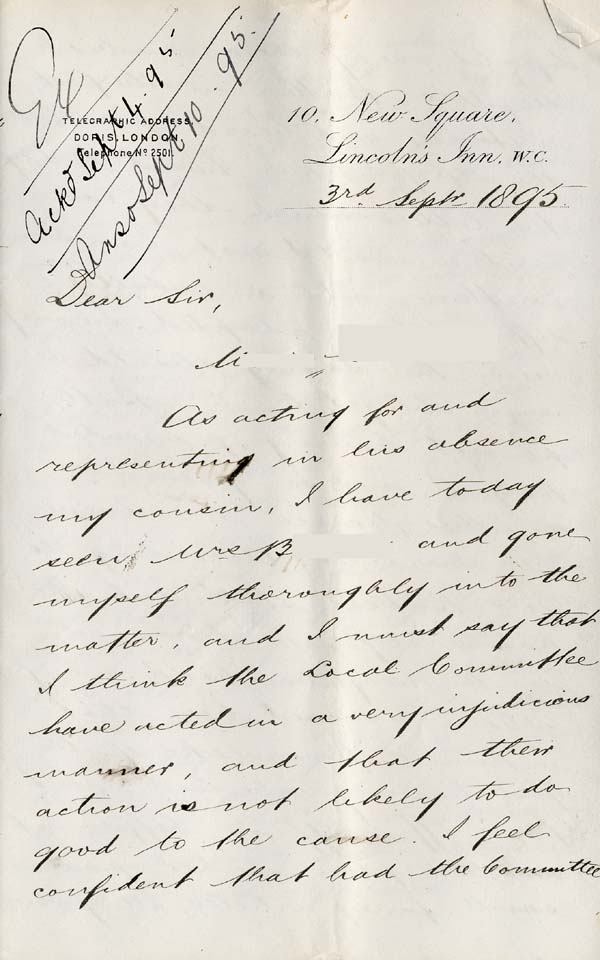 Ex
Ackd Sept 4. 95
Ansd Sept 10. 95.
TELEGRAPHIC ADDRESS,
DORIS, LONDON.
Telephone No 2501.
10. New Square,
Lincoln's Inn. W.C.
3rd Septr 1895.
Dear Sir,
As acting for and
representing in his absence
my cousin, I have today
seen Mrs B and gone
myself thoroughly into the
matter, and I must say that
I think the Local Committee
have acted in a very injudicious
manner, and that their
action is not likely to do
good to the cause. I feel
confident that had the Committee